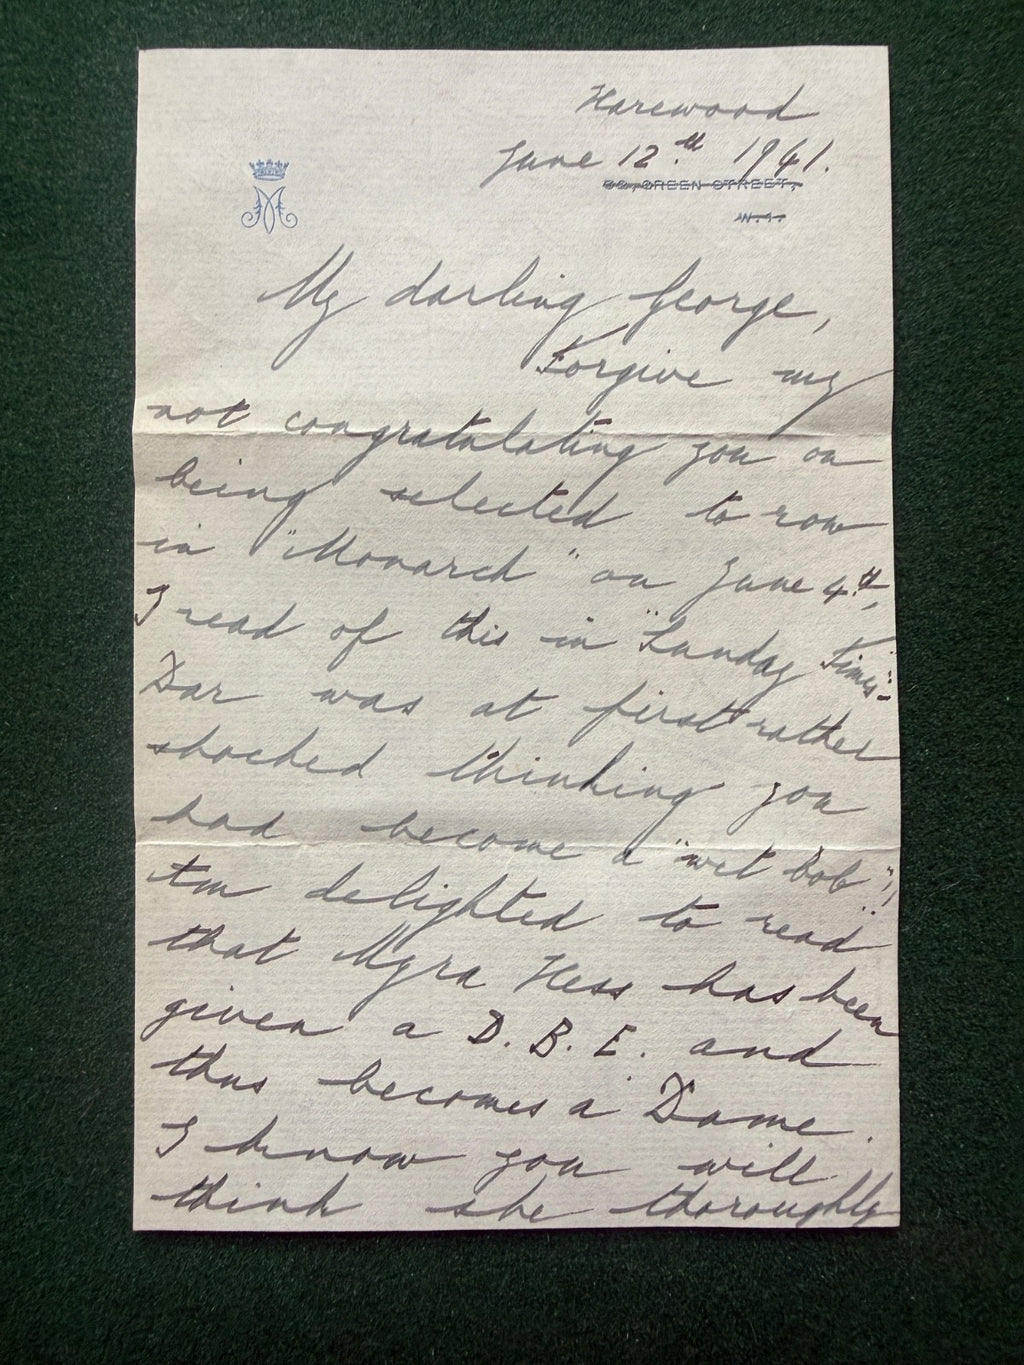 Harewood
June 12th 1941.
32, GREEN STREET,
W.1.
M
My darling George,
Forgive my
not congratulating you on
being selected to row
in "Monarch" on June 4th,
I read of this in "Sunday Times"-
Dar was at first rather
shocked thinking you
had become a "wet bob"!
I'm delighted to read
that Myra Hess has been
given a D.B.E. and
thus becomes a Dame.
I know you will
think she thoroughly